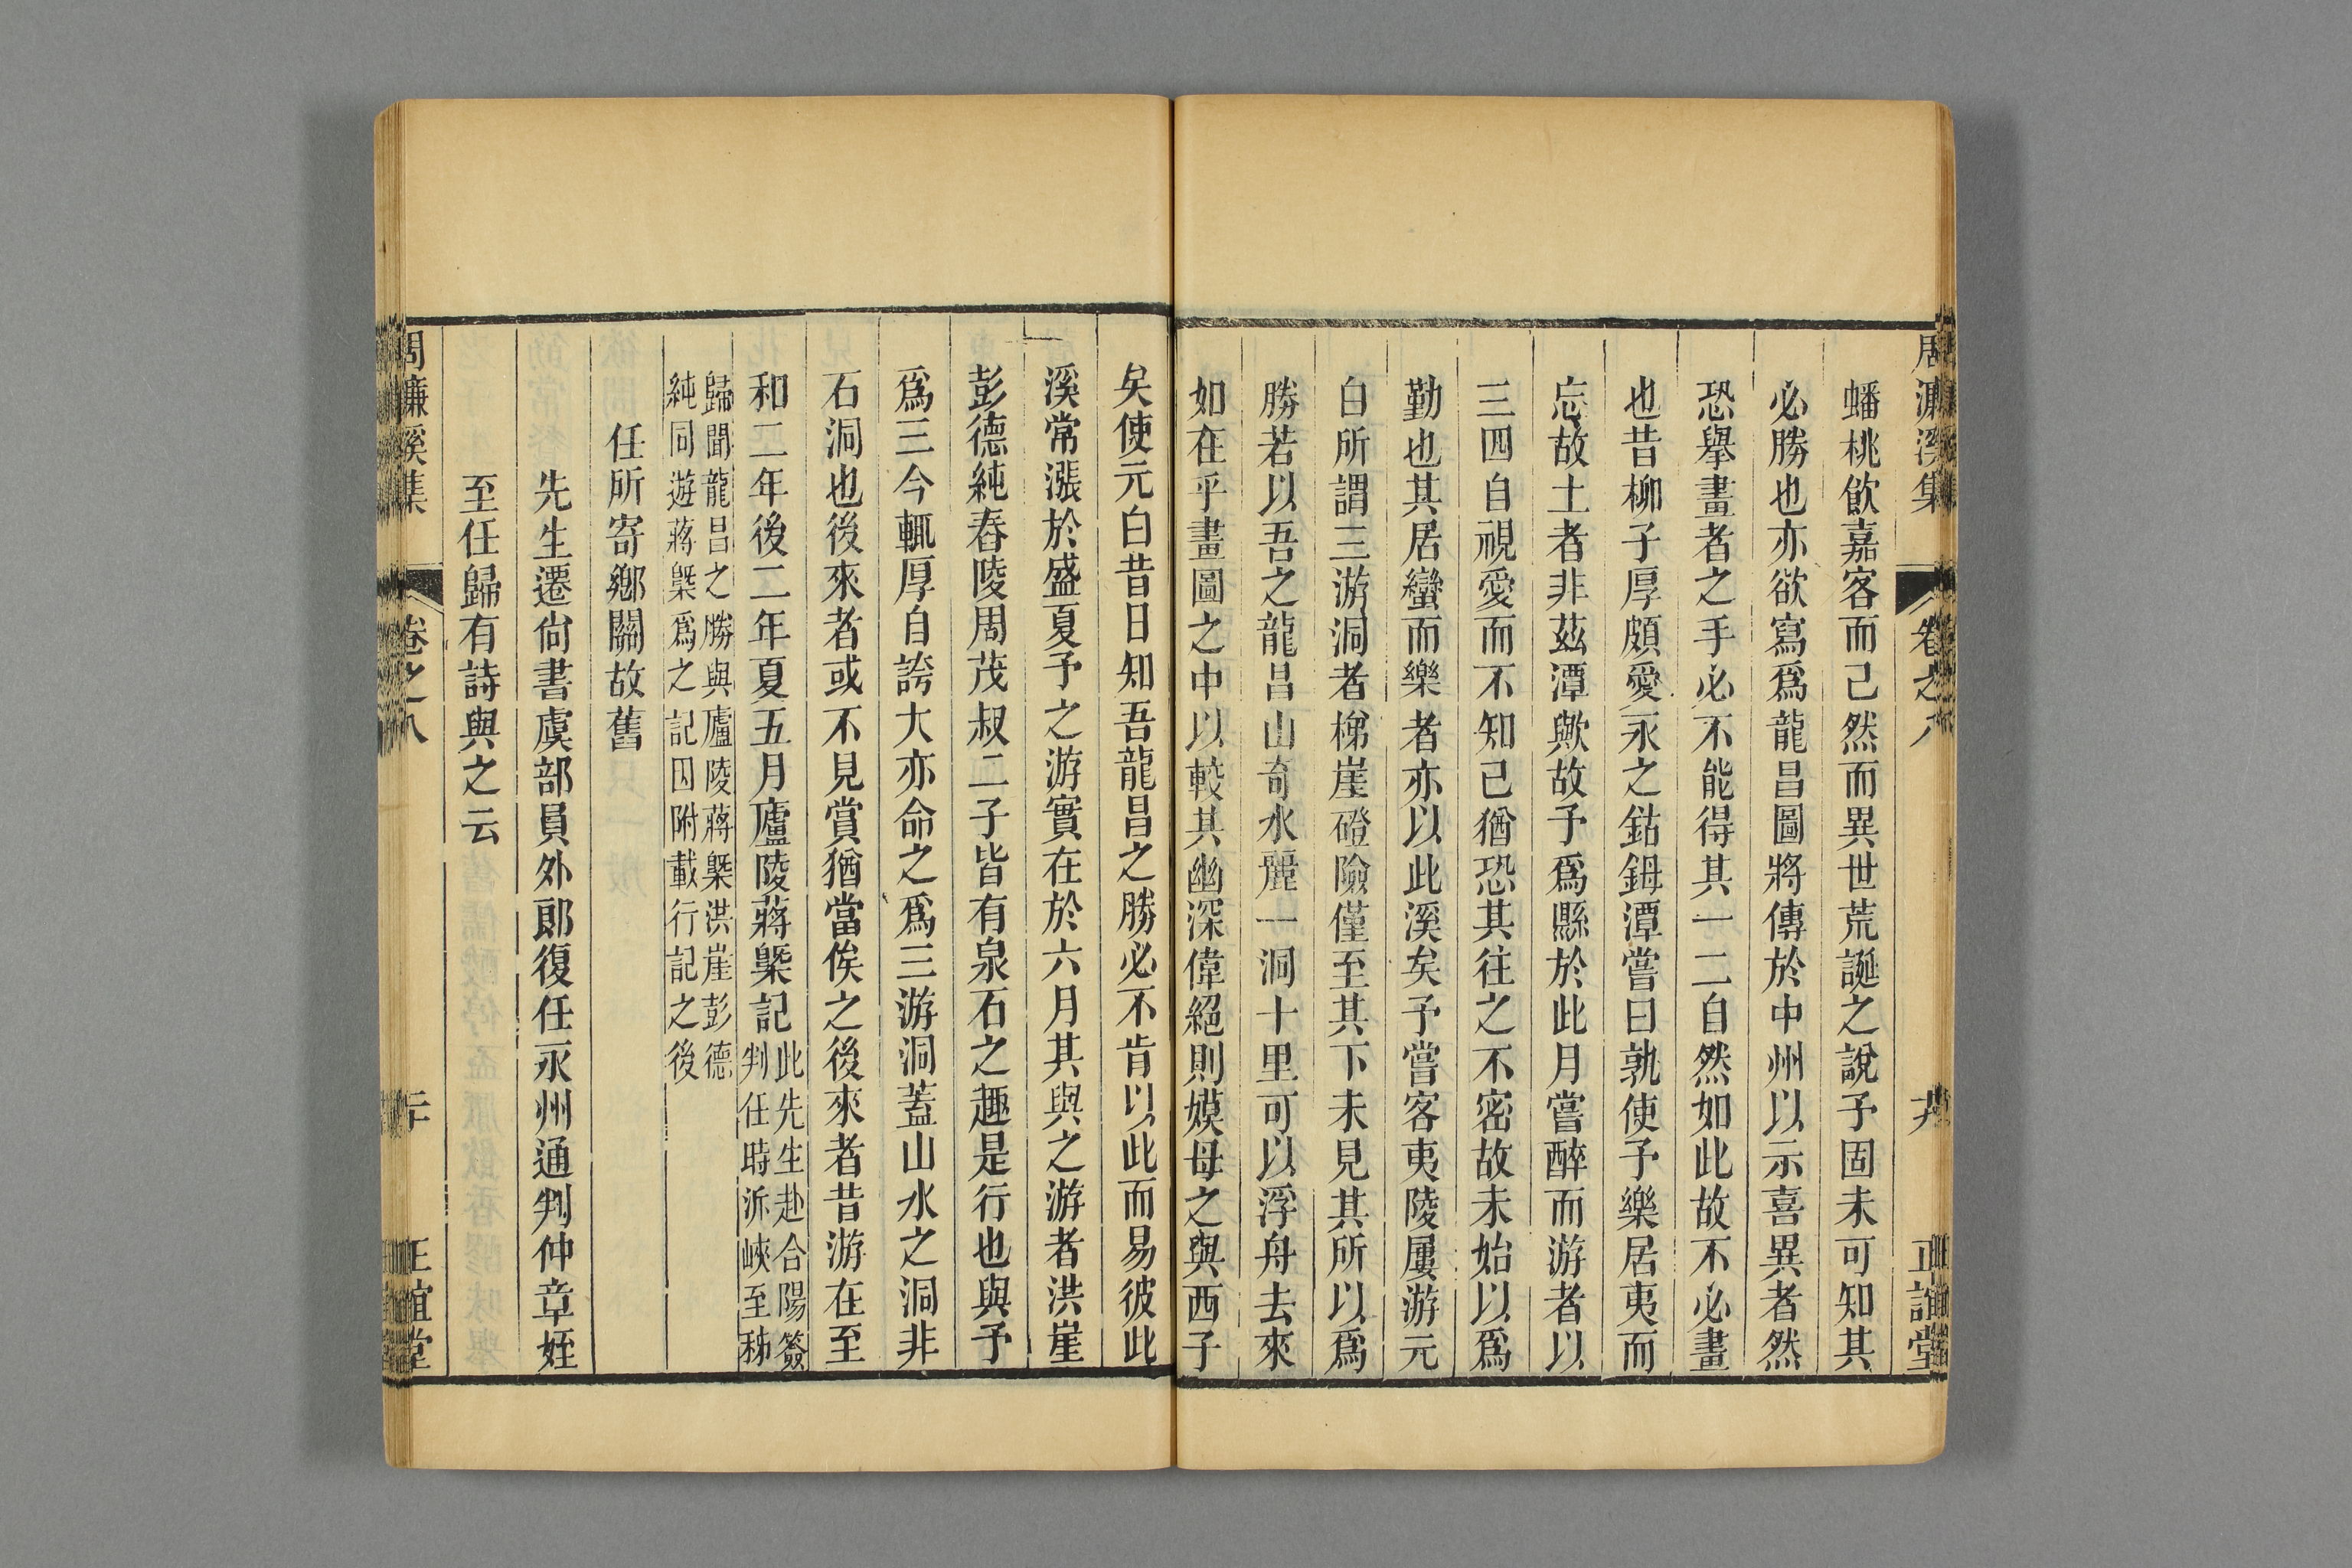 周濂溪集 卷之八 正誼堂
蟠桃飲嘉客而己然而異世荒誕之說予固未可知其
必勝也亦欲寫爲龍昌圖將傳於中州以示喜異者然
恐舉畫者之手必不能得其一二自然如此故不必畫
也昔柳子厚頗愛永之鈷鉧潭嘗曰孰使予樂居夷而
忘故土者非茲潭歟故予爲縣於此月嘗醉而游者以
三四自視愛而不知己猶恐其往之不密故未始以爲
勤也其居蠻而樂者亦以此溪矣予嘗客夷陵屢游元
白所謂三游洞者梯崖磴險僅至其下未見其所以爲
勝若以吾之龍昌山奇水麗一洞十里可以浮舟去來
如在乎畫圖之中以較其幽深偉絕則嫫母之與西子
矣使元白昔日知吾龍昌之勝必不肯以此而易彼此
溪常漲於盛夏予之游實在於六月其與之游者洪崖
彭德純舂陵周茂叔二子皆有泉石之趣是行也與予
爲三今輒厚自誇大亦命之爲三游洞蓋山水之洞非
石洞也後來者或不見賞猶當俟之後來者昔游在至
和二年後二年夏五月廬陵蔣㮣記
此先生赴合陽簽
判任時泝峽至秭
歸聞龍昌之勝與廬陵蔣㮣洪崖彭德
純同遊蔣㮣爲之記因附載行記之後
任所寄鄉關故舊
先生遷尙書虞部員外郎復任永州通判仲章姪
至任歸有詩與之云
周濂溪集 卷之八 二十 正誼堂